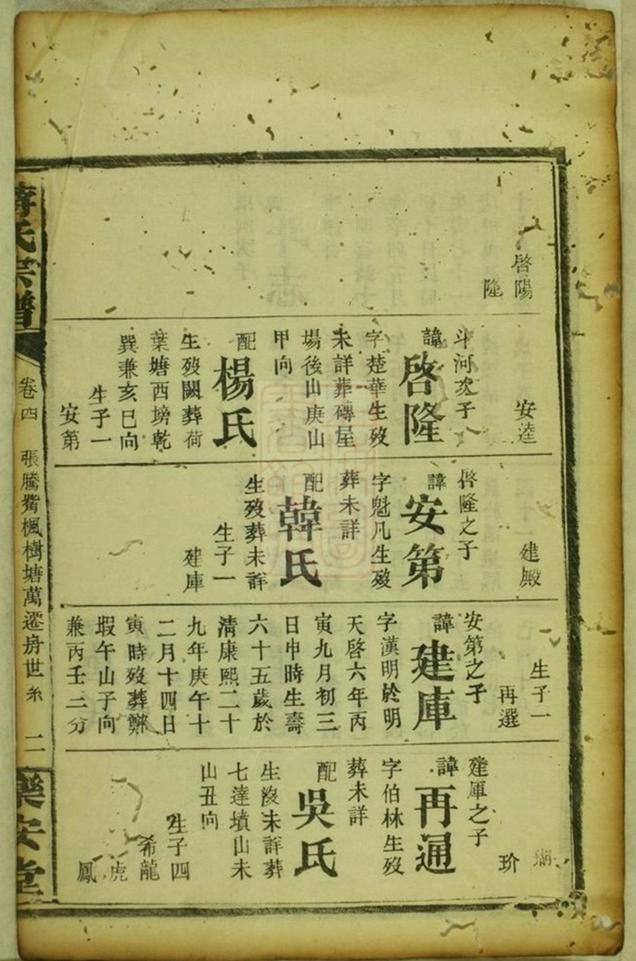 啓陽
隆
斗河次子
諱啓隆
字楚華生歿
未詳葬磚屋
場後山庚山
甲向
配楊氏
生歿闕葬荷
葉塘西塝乾
巽兼亥巳向
生子一
安第
安逵
啓隆之子
諱安第
字魁凡生歿
葬未詳
配韓氏
生歿葬未詳
生子一
建庫
建殿
安第之子
諱建庫
字漢明於明
天啓六年丙
寅九月初三
日申時生壽
六十五歲於
清康熙二十
九年庚午十
二月十四日
寅時歿葬鄭
瑕午山子向
兼丙壬三分
生子一
再選
建庫之子
諱再通
字伯林生歿
葬未詳
配吳氏
生歿未詳葬
七達墳山未
山丑向
生子四
希龍
虎
鳳
玠
蔣氏宗譜
卷四
張騰觜楓樹塘萬遷房世系
二
樂安堂